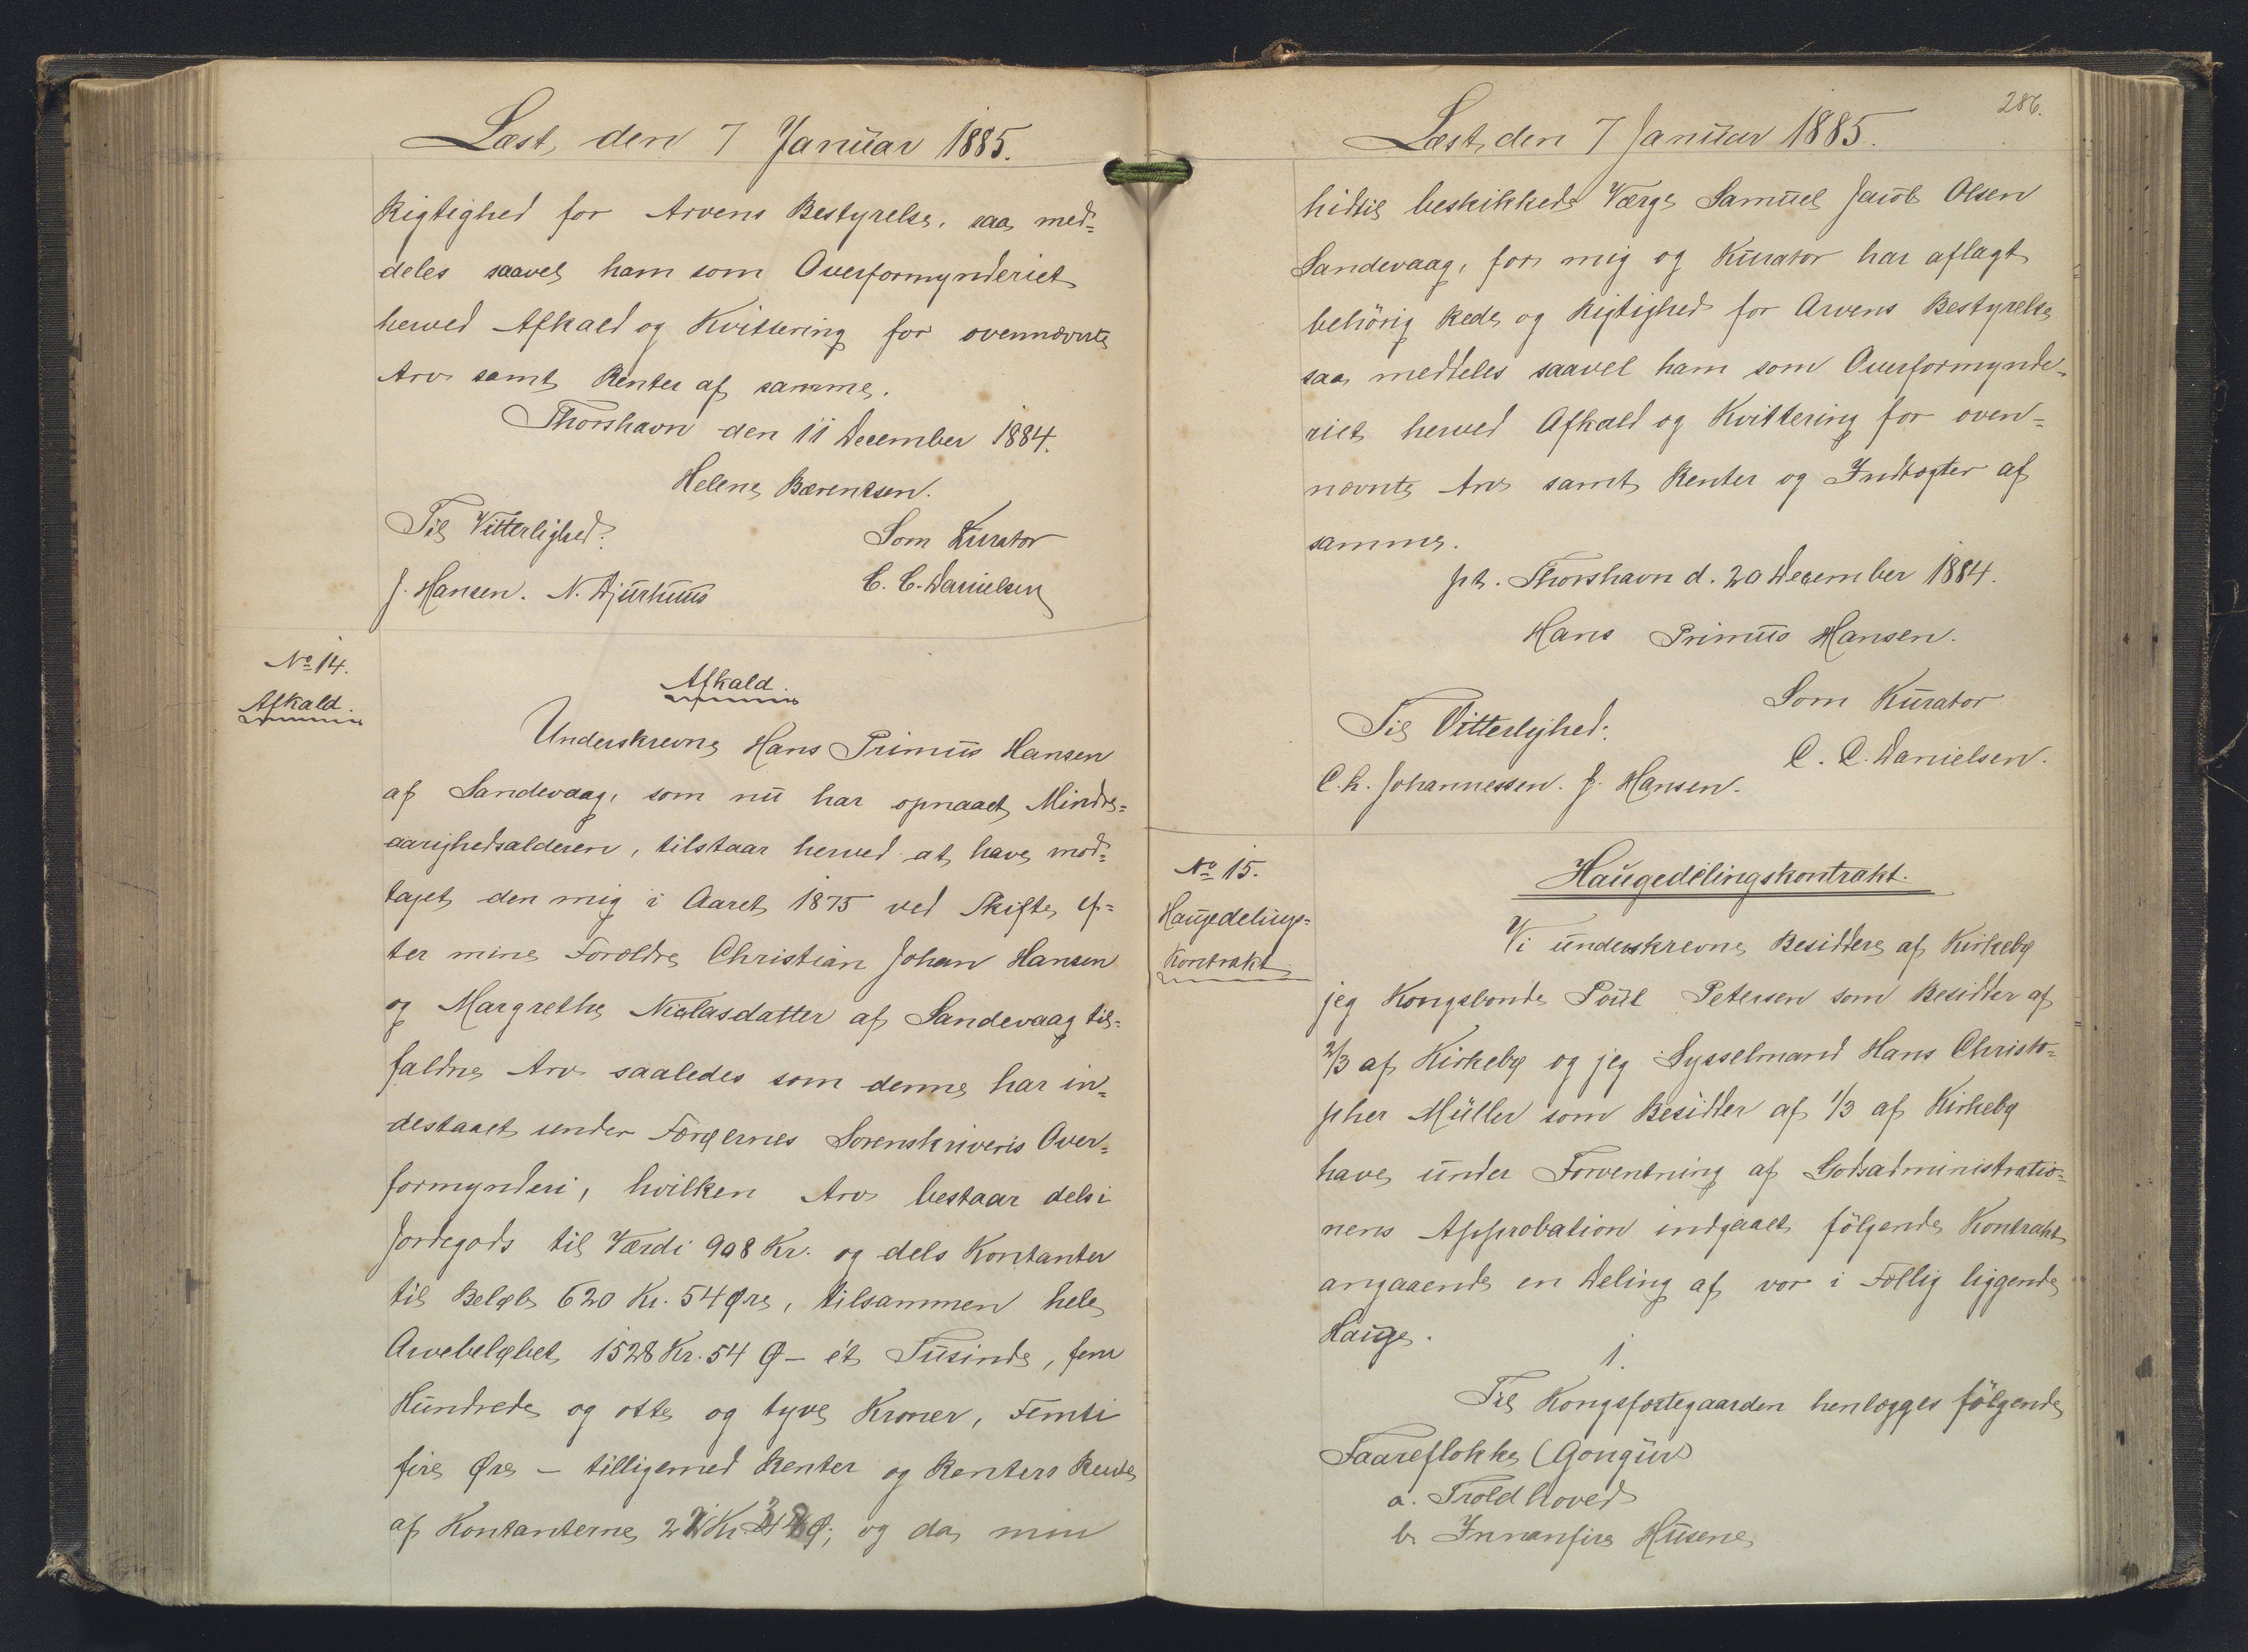 Læst, den 7 Januar 1885.
Rigtighed for Arvens Bestyrelse, saa med=
deles saavel ham som Overformynderiet
herved Afkald og Kvittering for ovennævnte
Arv samt Renter af samme.
Thorshavn den 11 December 1884.
Helene Bærentsen.
Til Vitterlighed:
Som Kurator
J. Hansen. N. Djurhuus
C. C. Danielsen
No 14.
Afkald.
Afkald.
Underskrevne Hans Primus Hansen
af Sandevaag, som nu har opnaaet Mindre=
aarighedsalderen, tilstaar herved at have mod=
taget den mig i Aaret 1875 ved Skifte ef=
ter mine Forældre Christian Johan Hansen
og Margrethe Niclasdatter af Sandevaag til=
faldne Arv saaledes som denne har in=
destaaet under Færøernes Sorenskriveris Over=
formynderi, hvilken Arv bestaar dels i
Jordegods til Værdi 908 Kr. og dels Kontanter
til Beløb 620 Kr. 54 Øre, tilsammen hele
Arvebeløbet 1528 Kr. 54 Ø – ét Tusinde, fem
Hundrede og otte og tyve Kroner, Femti
fire Øre – tilligemed Renter og Renters Rente
af Kontanterne og da min
286.
Læst, den 7 Januar 1885.
hidtil beskikkede Værge Samuel Jacob Olsen
Sandevaag, for mig og Kurator har aflagt
behörig Rede og Rigtighed for Arvens Bestyrelse
saa meddeles saavel ham som Overformynde=
riet herved Afkald og Kvittering for oven=
nævnte Arv samt Renter og Indtægter af
samme.
pt. Thorshavn d. 20 December 1884.
Hans Primus Hansen.
Som Kurator
Til Vitterlighed:
C. C. Danielsen.
C. h. Johannessen. J. Hansen.
No 15.
Haugedelings=
Kontrakt
Haugedelingskontrakt.
Vi underskrevne Besiddere af Kirkebø
jeg Kongsbonde Poul Petersen som Besidder af
2/3 af Kirkebø og jeg Sysselmand Hans Christo=
pher Müller som Besidder af 1/3 af Kirkebø
have under Forventning af Godsadministratio=
nens Approbation indgaaet følgende Kontrakt
angaaende en Deling af vor i Fællig liggende
Hauge.
1.
Til Kongsfæstegaarden henlægges følgende
Faareflokke (Gongur)
a. Troldhoved
b. Innanfire Husene